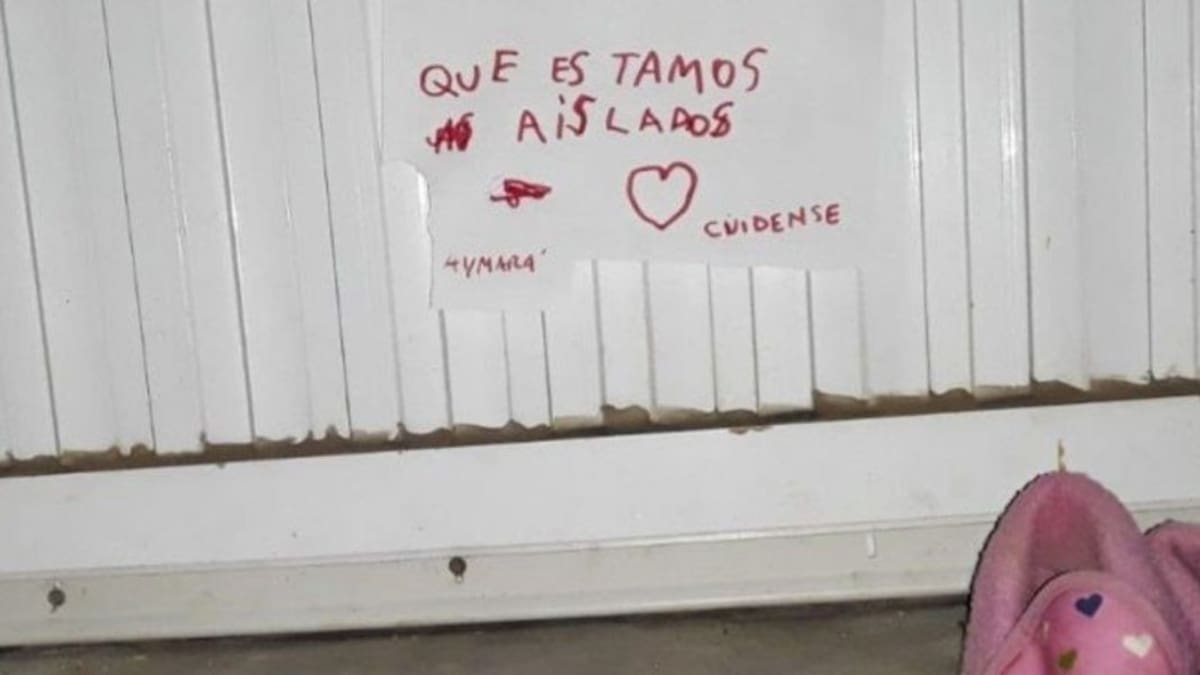 QUE ESTAMOS
AiSLADOS
CUIDENSE
AYMARÁ